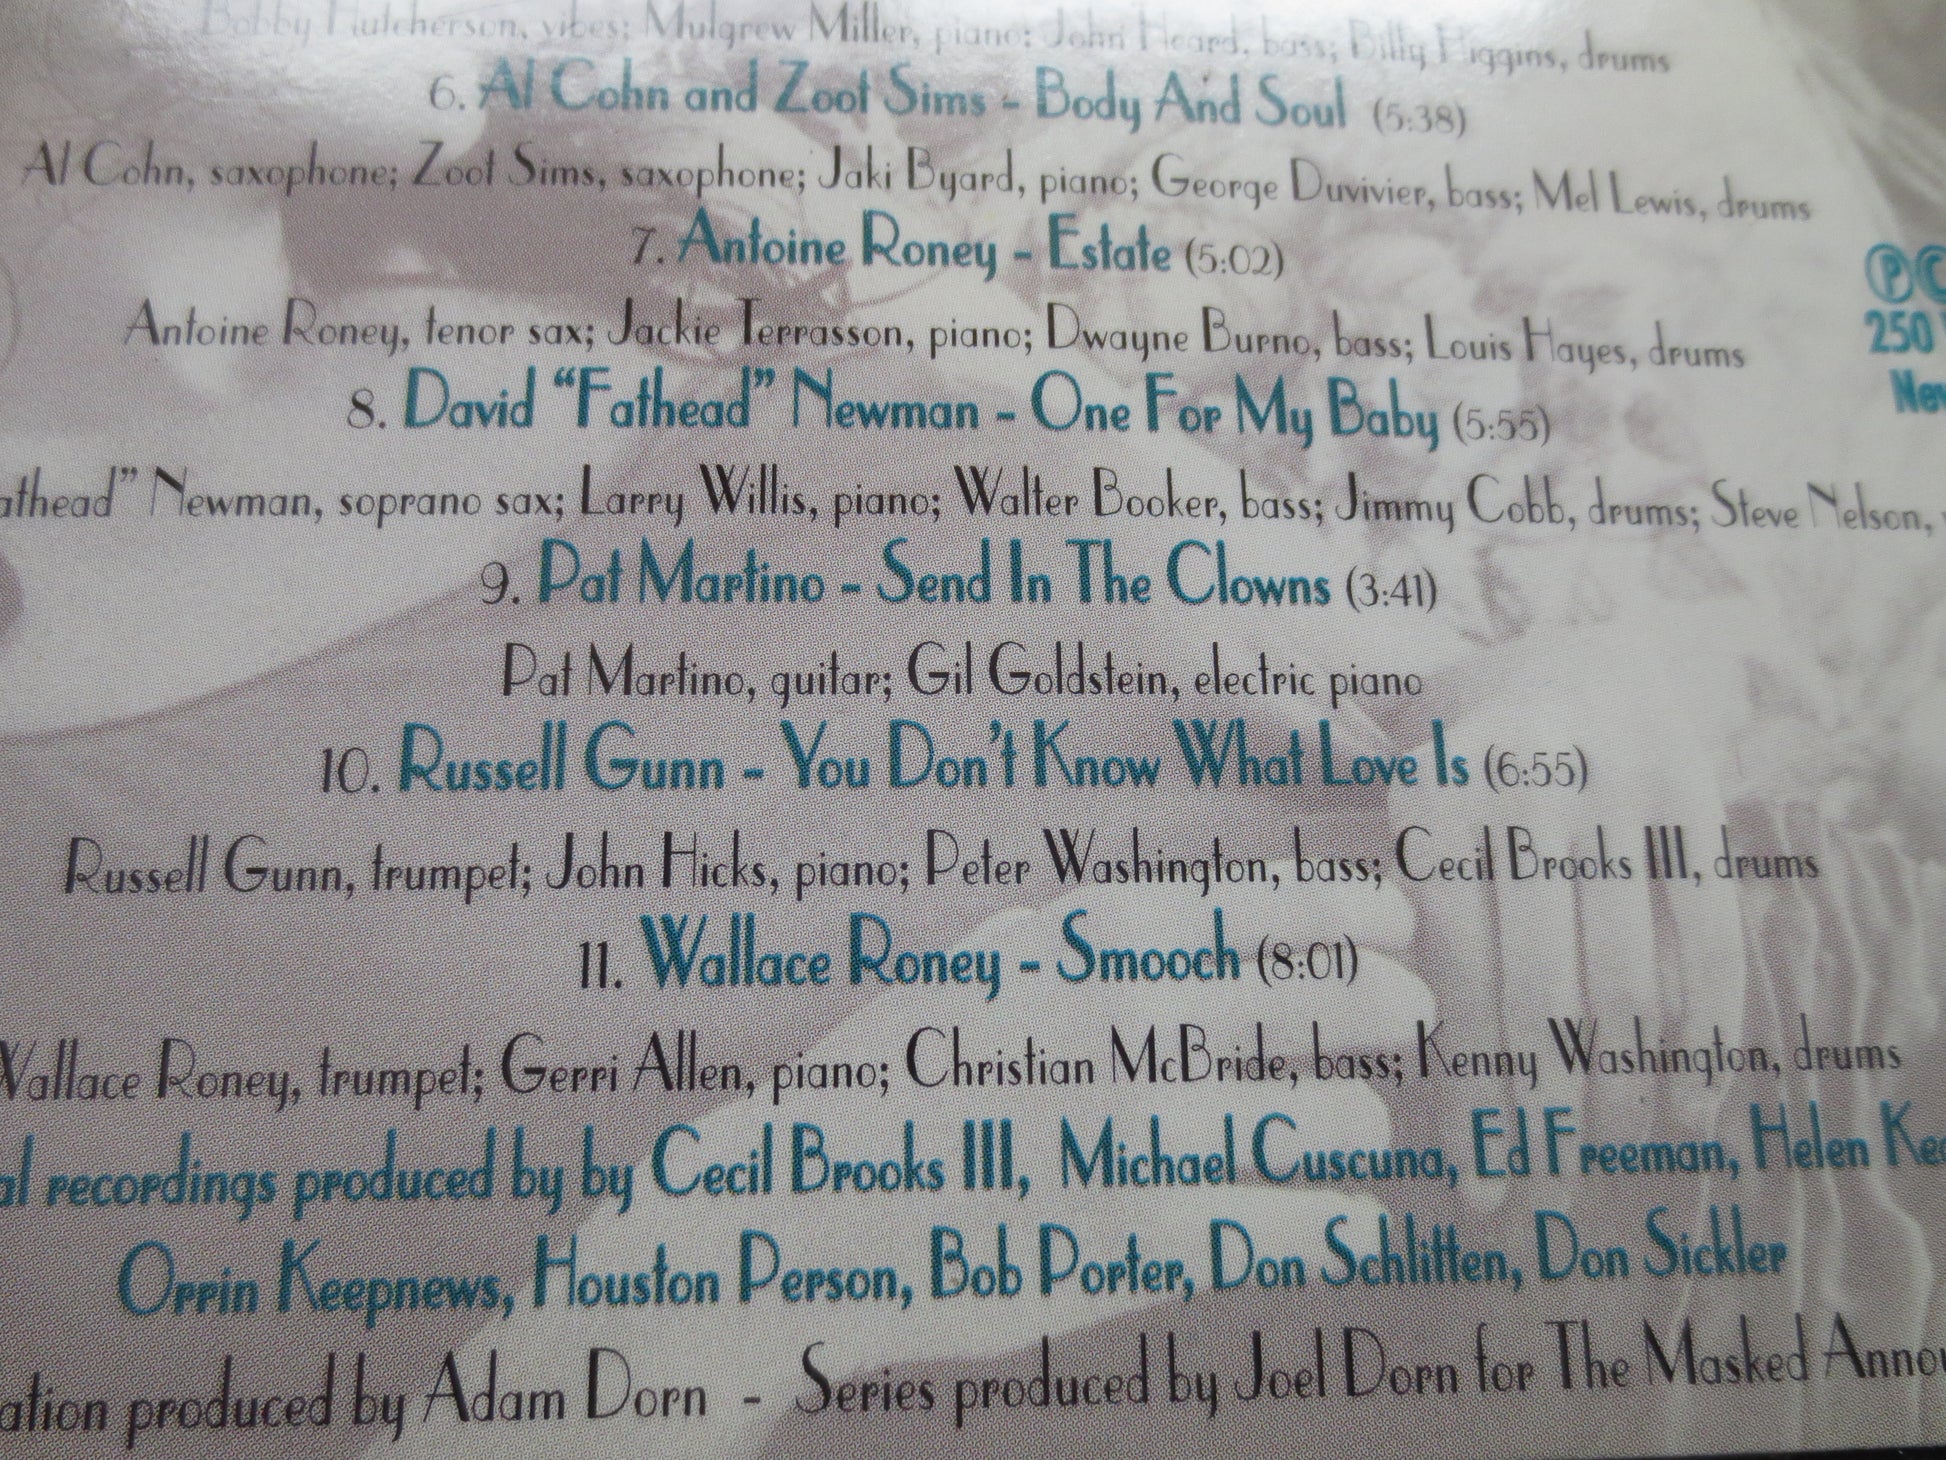 Bobby Hutcherson, vibes; Mulgrew Miller, piano; John Heard, bass; Billy Higgins, drums
6. Al Cohn and Zoot Sims - Body And Soul (5:38)
Al Cohn, saxophone; Zoot Sims, saxophone; Jaki Byard, piano; George Duvivier, bass; Mel Lewis, drums
7. Antoine Roney - Estate (5:02)
Antoine Roney, tenor sax; Jackie Terrasson, piano; Dwayne Burno, bass; Louis Hayes, drums
8. David “Fathead” Newman - One For My Baby (5:55)
athead” Newman, soprano sax; Larry Willis, piano; Walter Booker, bass; Jimmy Cobb, drums; Steve Nelson,
9. Pat Martino - Send In The Clowns (3:41)
Pat Martino, guitar; Gil Goldstein, electric piano
10. Russell Gunn - You Don't Know What Love Is (6:55)
Russell Gunn, trumpet; John Hicks, piano; Peter Washington, bass; Cecil Brooks III, drums
11. Wallace Roney - Smooch (8:01)
Wallace Roney, trumpet; Gerri Allen, piano; Christian McBride, bass; Kenny Washington, drums
al recordings produced by by Cecil Brooks III, Michael Cuscuna, Ed Freeman, Helen Kee
Orrin Keepnews, Houston Person, Bob Porter, Don Schlitten, Don Sickler
ation produced by Adam Dorn - Series produced by Joel Dorn for The Masked Annou
℗©
250
New